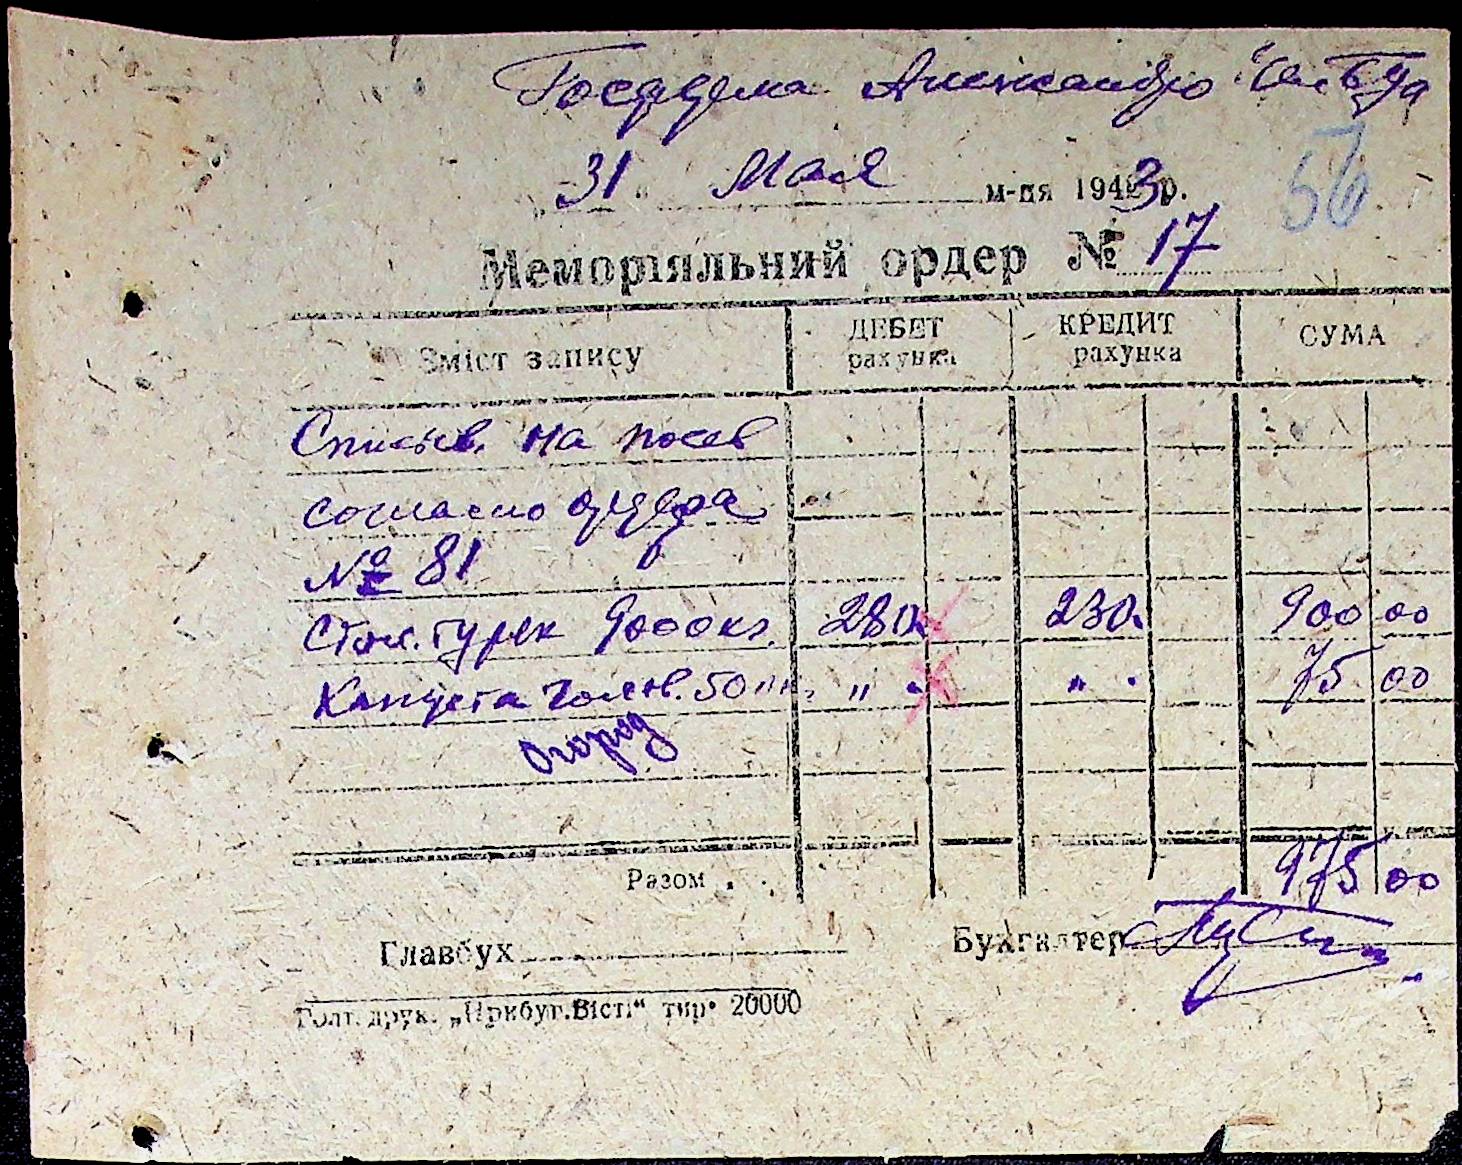 Александро
"31" Мая м-ця 1943 р.
56
Меморіяльний ордер № 17
Зміст запису ДЕБЕТ рахунка КРЕДИТ рахунка СУМА
Списыв. на посев
согласно ордера
№ 81
280. 230. 900 00
Капуста " . " . 75 00
огород
Разом . 975 00
Главбух Бухгалтер
Голт. друк. „Прибуг.Вісті“ тир. 20000